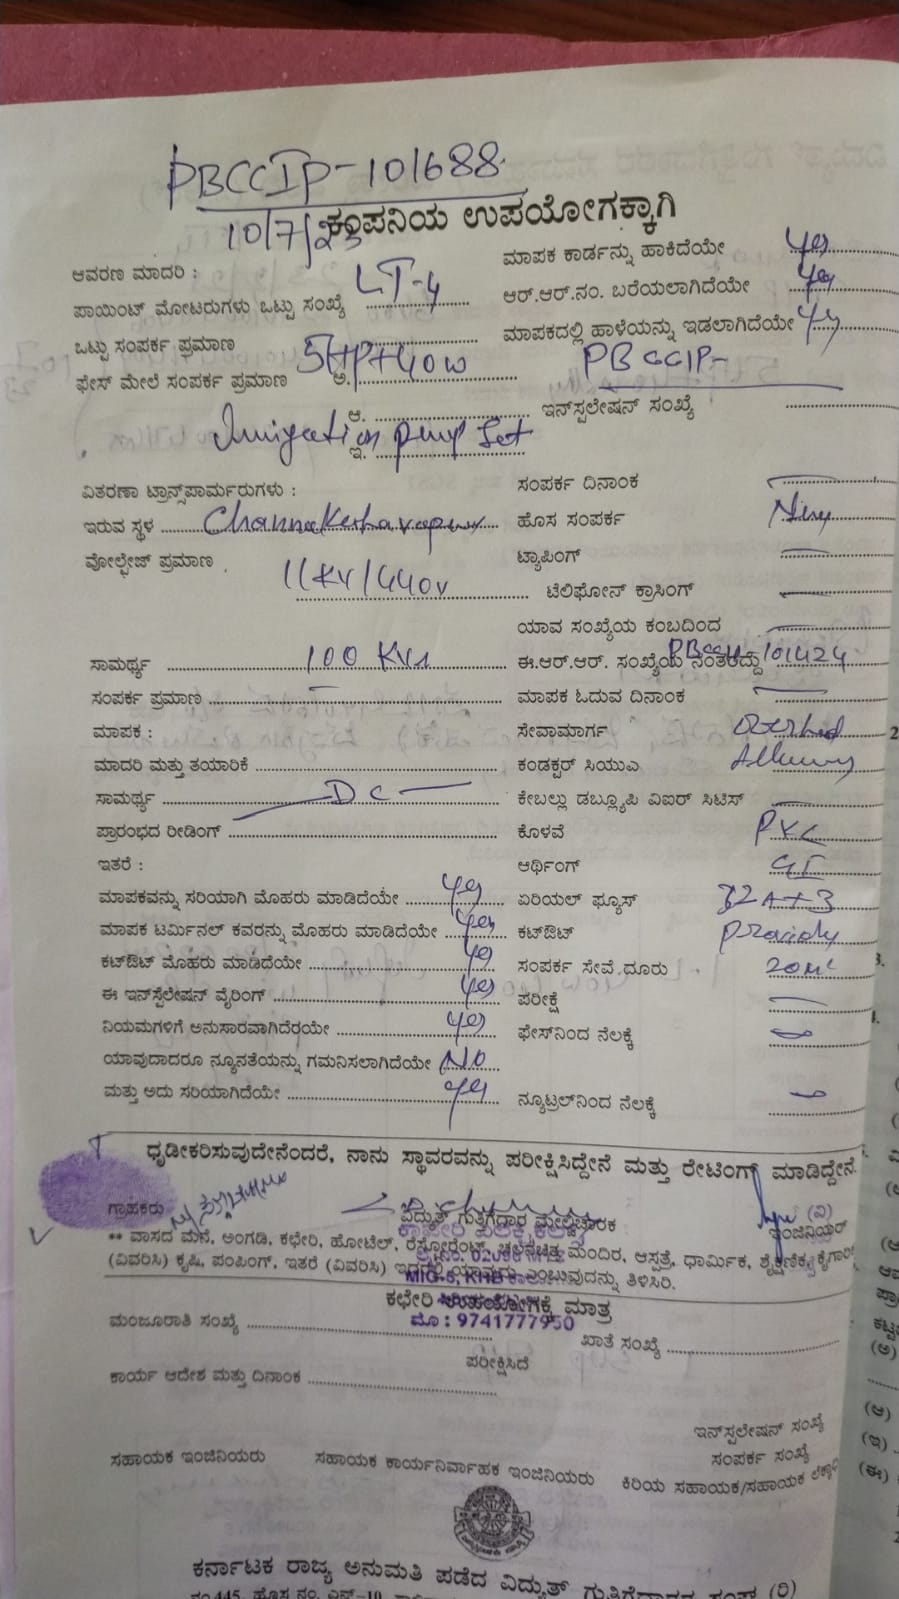 PBCCIP-101688
10/7/23 ಕಂಪನಿಯ ಉಪಯೋಗಕ್ಕಾಗಿ
ಆವರಣ ಮಾದರಿ : LT-4 ಮಾಪಕ ಕಾರ್ಡನ್ನು ಹಾಕಿದೆಯೇ yes
ಪಾಯಿಂಟ್ ಮೋಟರುಗಳು ಒಟ್ಟು ಸಂಖ್ಯೆ ಆರ್.ಆರ್.ನಂ. ಬರೆಯಲಾಗಿದೆಯೇ yes
ಒಟ್ಟು ಸಂಪರ್ಕ ಪ್ರಮಾಣ 5HP+40w ಮಾಪಕದಲ್ಲಿ ಹಾಳೆಯನ್ನು ಇಡಲಾಗಿದೆಯೇ
ಫೇಸ್ ಮೇಲೆ ಸಂಪರ್ಕ ಪ್ರಮಾಣ ಅ. PBCCIP-
ಆ. ಇನ್‌ಸ್ಪಲೇಷನ್ ಸಂಖ್ಯೆ
Irrigation pump Set ಇ.
ವಿತರಣಾ ಟ್ರಾನ್ಸ್‌ಪಾರ್ಮರುಗಳು : ಸಂಪರ್ಕ ದಿನಾಂಕ
ಇರುವ ಸ್ಥಳ Channakeshavapura ಹೊಸ ಸಂಪರ್ಕ New
ವೋಲ್ಟೇಜ್ ಪ್ರಮಾಣ 11KV/440V ಟ್ಯಾಪಿಂಗ್
ಟೆಲಿಫೋನ್ ಕ್ರಾಸಿಂಗ್
ಯಾವ ಸಂಖ್ಯೆಯ ಕಂಬದಿಂದ
ಸಾಮರ್ಥ್ಯ 100 KVA ಈ.ಆರ್.ಆರ್. ಸಂಖ್ಯೆಯ ನಂತರದ್ದು 101424
ಸಂಪರ್ಕ ಪ್ರಮಾಣ ಮಾಪಕ ಓದುವ ದಿನಾಂಕ
ಮಾಪಕ : ಸೇವಾಮಾರ್ಗ Overhead
ಮಾದರಿ ಮತ್ತು ತಯಾರಿಕೆ ಕಂಡಕ್ಟರ್ ಸಿಯುಎ
ಸಾಮರ್ಥ್ಯ DC ಕೇಬಲ್ಲು ಡಬ್ಲ್ಯೂಪಿ ವಿಐರ್ ಸಿಟಿಸ್
ಪ್ರಾರಂಭದ ರೀಡಿಂಗ್ ಕೊಳವೆ PVC
ಇತರೆ : ಆರ್ಥಿಂಗ್ GI
ಮಾಪಕವನ್ನು ಸರಿಯಾಗಿ ಮೊಹರು ಮಾಡಿದೆಯೇ yes ಏರಿಯಲ್ ಫ್ಯೂಸ್ 32A+3
ಮಾಪಕ ಟರ್ಮಿನಲ್ ಕವರನ್ನು ಮೊಹರು ಮಾಡಿದೆಯೇ yes ಕಟ್‌ಔಟ್
ಕಟ್‌ಔಟ್ ಮೊಹರು ಮಾಡಿದೆಯೇ yes ಸಂಪರ್ಕ ಸೇವೆ ದೂರು
ಈ ಇನ್‌ಸ್ಟಲೇಷನ್ ವೈರಿಂಗ್ yes ಪರೀಕ್ಷೆ
ನಿಯಮಗಳಿಗೆ ಅನುಸಾರವಾಗಿದೆರಯೇ yes ಫೇಸ್‌ನಿಂದ ನೆಲಕ್ಕೆ
ಯಾವುದಾದರೂ ನ್ಯೂನತೆಯನ್ನು ಗಮನಿಸಲಾಗಿದೆಯೇ NO
ಮತ್ತು ಅದು ಸರಿಯಾಗಿದೆಯೇ yes ನ್ಯೂಟ್ರಲ್‌ನಿಂದ ನೆಲಕ್ಕೆ
ಧೃಡೀಕರಿಸುವುದೇನೆಂದರೆ, ನಾನು ಸ್ಥಾವರವನ್ನು ಪರೀಕ್ಷಿಸಿದ್ದೇನೆ ಮತ್ತು ರೇಟಿಂಗ್ ಮಾಡಿದ್ದೇನೆ
ಗ್ರಾಹಕರು ವಿದ್ಯುತ್ ಗುತ್ತಿಗೆದಾರ ಮೇಲ್ವಿಚಾರಕ (ವಿ) ಇಂಜಿನಿಯರ್
** ವಾಸದ ಮನೆ, ಅಂಗಡಿ, ಕಛೇರಿ, ಹೋಟೆಲ್, ರೆಸ್ಟೋರೆಂಟ್, ಚಲನಚಿತ್ರ ಮಂದಿರ, ಆಸ್ಪತ್ರೆ, ಧಾರ್ಮಿಕ, ಶೈಕ್ಷಣಿಕ,
(ವಿವರಿಸಿ) ಕೃಷಿ, ಪಂಪಿಂಗ್, ಇತರೆ (ವಿವರಿಸಿ) ಇದರಲ್ಲಿ ಯಾವುದು ಎಂಬುವುದನ್ನು ತಿಳಿಸಿರಿ.
MIG-5, KHB
ಕಛೇರಿ ಉಪಯೋಗಕ್ಕೆ ಮಾತ್ರ
ಮೊ : 9741777950
ಮಂಜೂರಾತಿ ಸಂಖ್ಯೆ ಖಾತೆ ಸಂಖ್ಯೆ
ಪರೀಕ್ಷಿಸಿದೆ
ಕಾರ್ಯ ಆದೇಶ ಮತ್ತು ದಿನಾಂಕ
ಇನ್‌ಸ್ಪಲೇಷನ್ ಸಂಖ್ಯೆ
ಸಂಪರ್ಕ ಸಂಖ್ಯೆ
ಸಹಾಯಕ ಇಂಜಿನಿಯರು ಸಹಾಯಕ ಕಾರ್ಯನಿರ್ವಾಹಕ ಇಂಜಿನಿಯರು ಕಿರಿಯ ಸಹಾಯಕ/ಸಹಾಯಕ
ಕರ್ನಾಟಕ ರಾಜ್ಯ ಅನುಮತಿ ಪಡೆದ ವಿದ್ಯುತ್ ಗುತ್ತಿಗೆದಾರರ ಸಂಘ (ರಿ)